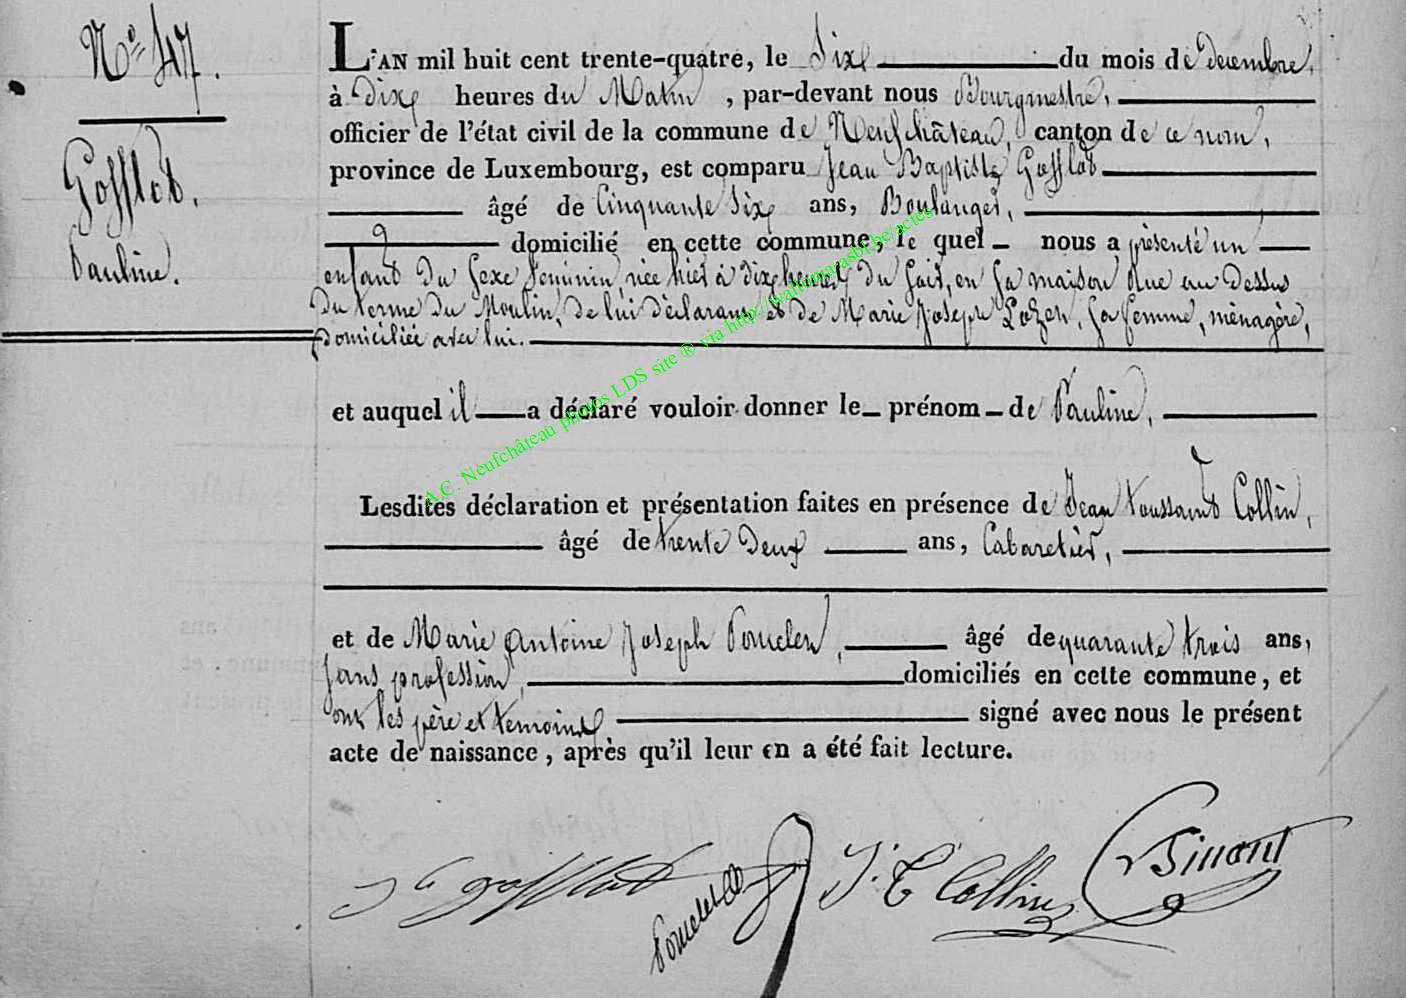 N° 47.
Gofflot.
Pauline.
L'AN mil huit cent trente-quatre, le Six du mois de decembre,
à dix heures du Matin, par-devant nous Bourgmestre,
officier de l'état civil de la commune de Neufchâteau, canton de ce nom,
province de Luxembourg, est comparu Jean Baptiste Gofflot
âgé de Cinquante Six ans, Boulanger,
domicilié en cette commune, le quel nous a présenté un
enfant du Sexe féminin, née hier à dix heures du Soir, en Sa maison Rue au Dessus
Du terme Du Moulin, de lui déclarant et de Marie Joseph Lozen, Sa femme, ménagère,
Domiciliée avec lui.
et auquel il a déclaré vouloir donner le prénom de Pauline,
Lesdites déclaration et présentation faites en présence de Jean toussaint Collin,
âgé de trente Deux ans, Cabaretier,
et de Marie Antoine Joseph Poncelet, âgé de quarante trois ans,
Sans profession, domiciliés en cette commune, et
ont les père et temoins signé avec nous le présent
acte de naissance, après qu'il leur en a été fait lecture.
Gofflot Poncelet J. T. Collin Sinont
A.C. Neufchâteau photos LDS site ® via http://